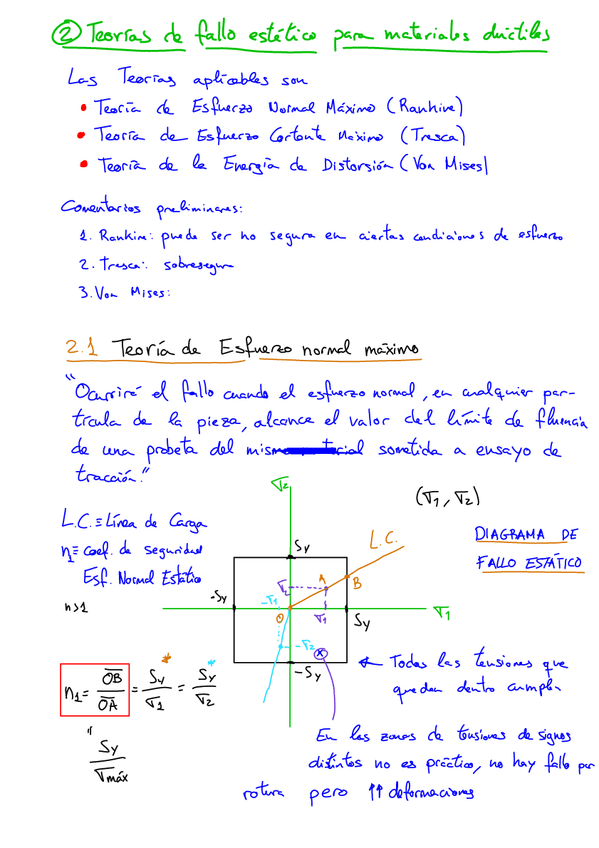 ② Teorías de fallo estático para materiales dúctiles
Las Teorías aplicables son
• Teoría de Esfuerzo Normal Máximo (Rankine)
• Teoría de Esfuerzo Cortante Máximo (Tresca)
• Teoría de la Energía de Distorsión (Von Mises)
Comentarios preliminares:
1. Rankine: puede ser no segura en ciertas condiciones de esfuerzo
2. Tresca: sobresegura
3. Von Mises:
2.1 Teoría de Esfuerzo normal máximo
"Ocurriré el fallo cuando el esfuerzo normal, en cualquier par-
tícula de la pieza, alcance el valor del límite de fluencia
de una probeta del mismo material sometida a ensayo de
tracción."
σ2
(σ1, σ2)
L.C. ≡ Línea de Carga
L.C.
DIAGRAMA DE
FALLO ESTÁTICO
η ≡ coef. de seguridad
Esf. Normal Estático
n>1
Sy
σ2 A B
-Sy -σ1 O σ1 Sy σ1
-σ2
-Sy
← Todas las tensiones que
quedan dentro cumplen
n1 = OB/OA = Sy/σ1 * = Sy/σ2 *
"
Sy/σmáx
En las zonas de tensiones de signos
distintos no es práctico, no hay fallo por
rotura pero ↑↑ deformaciones